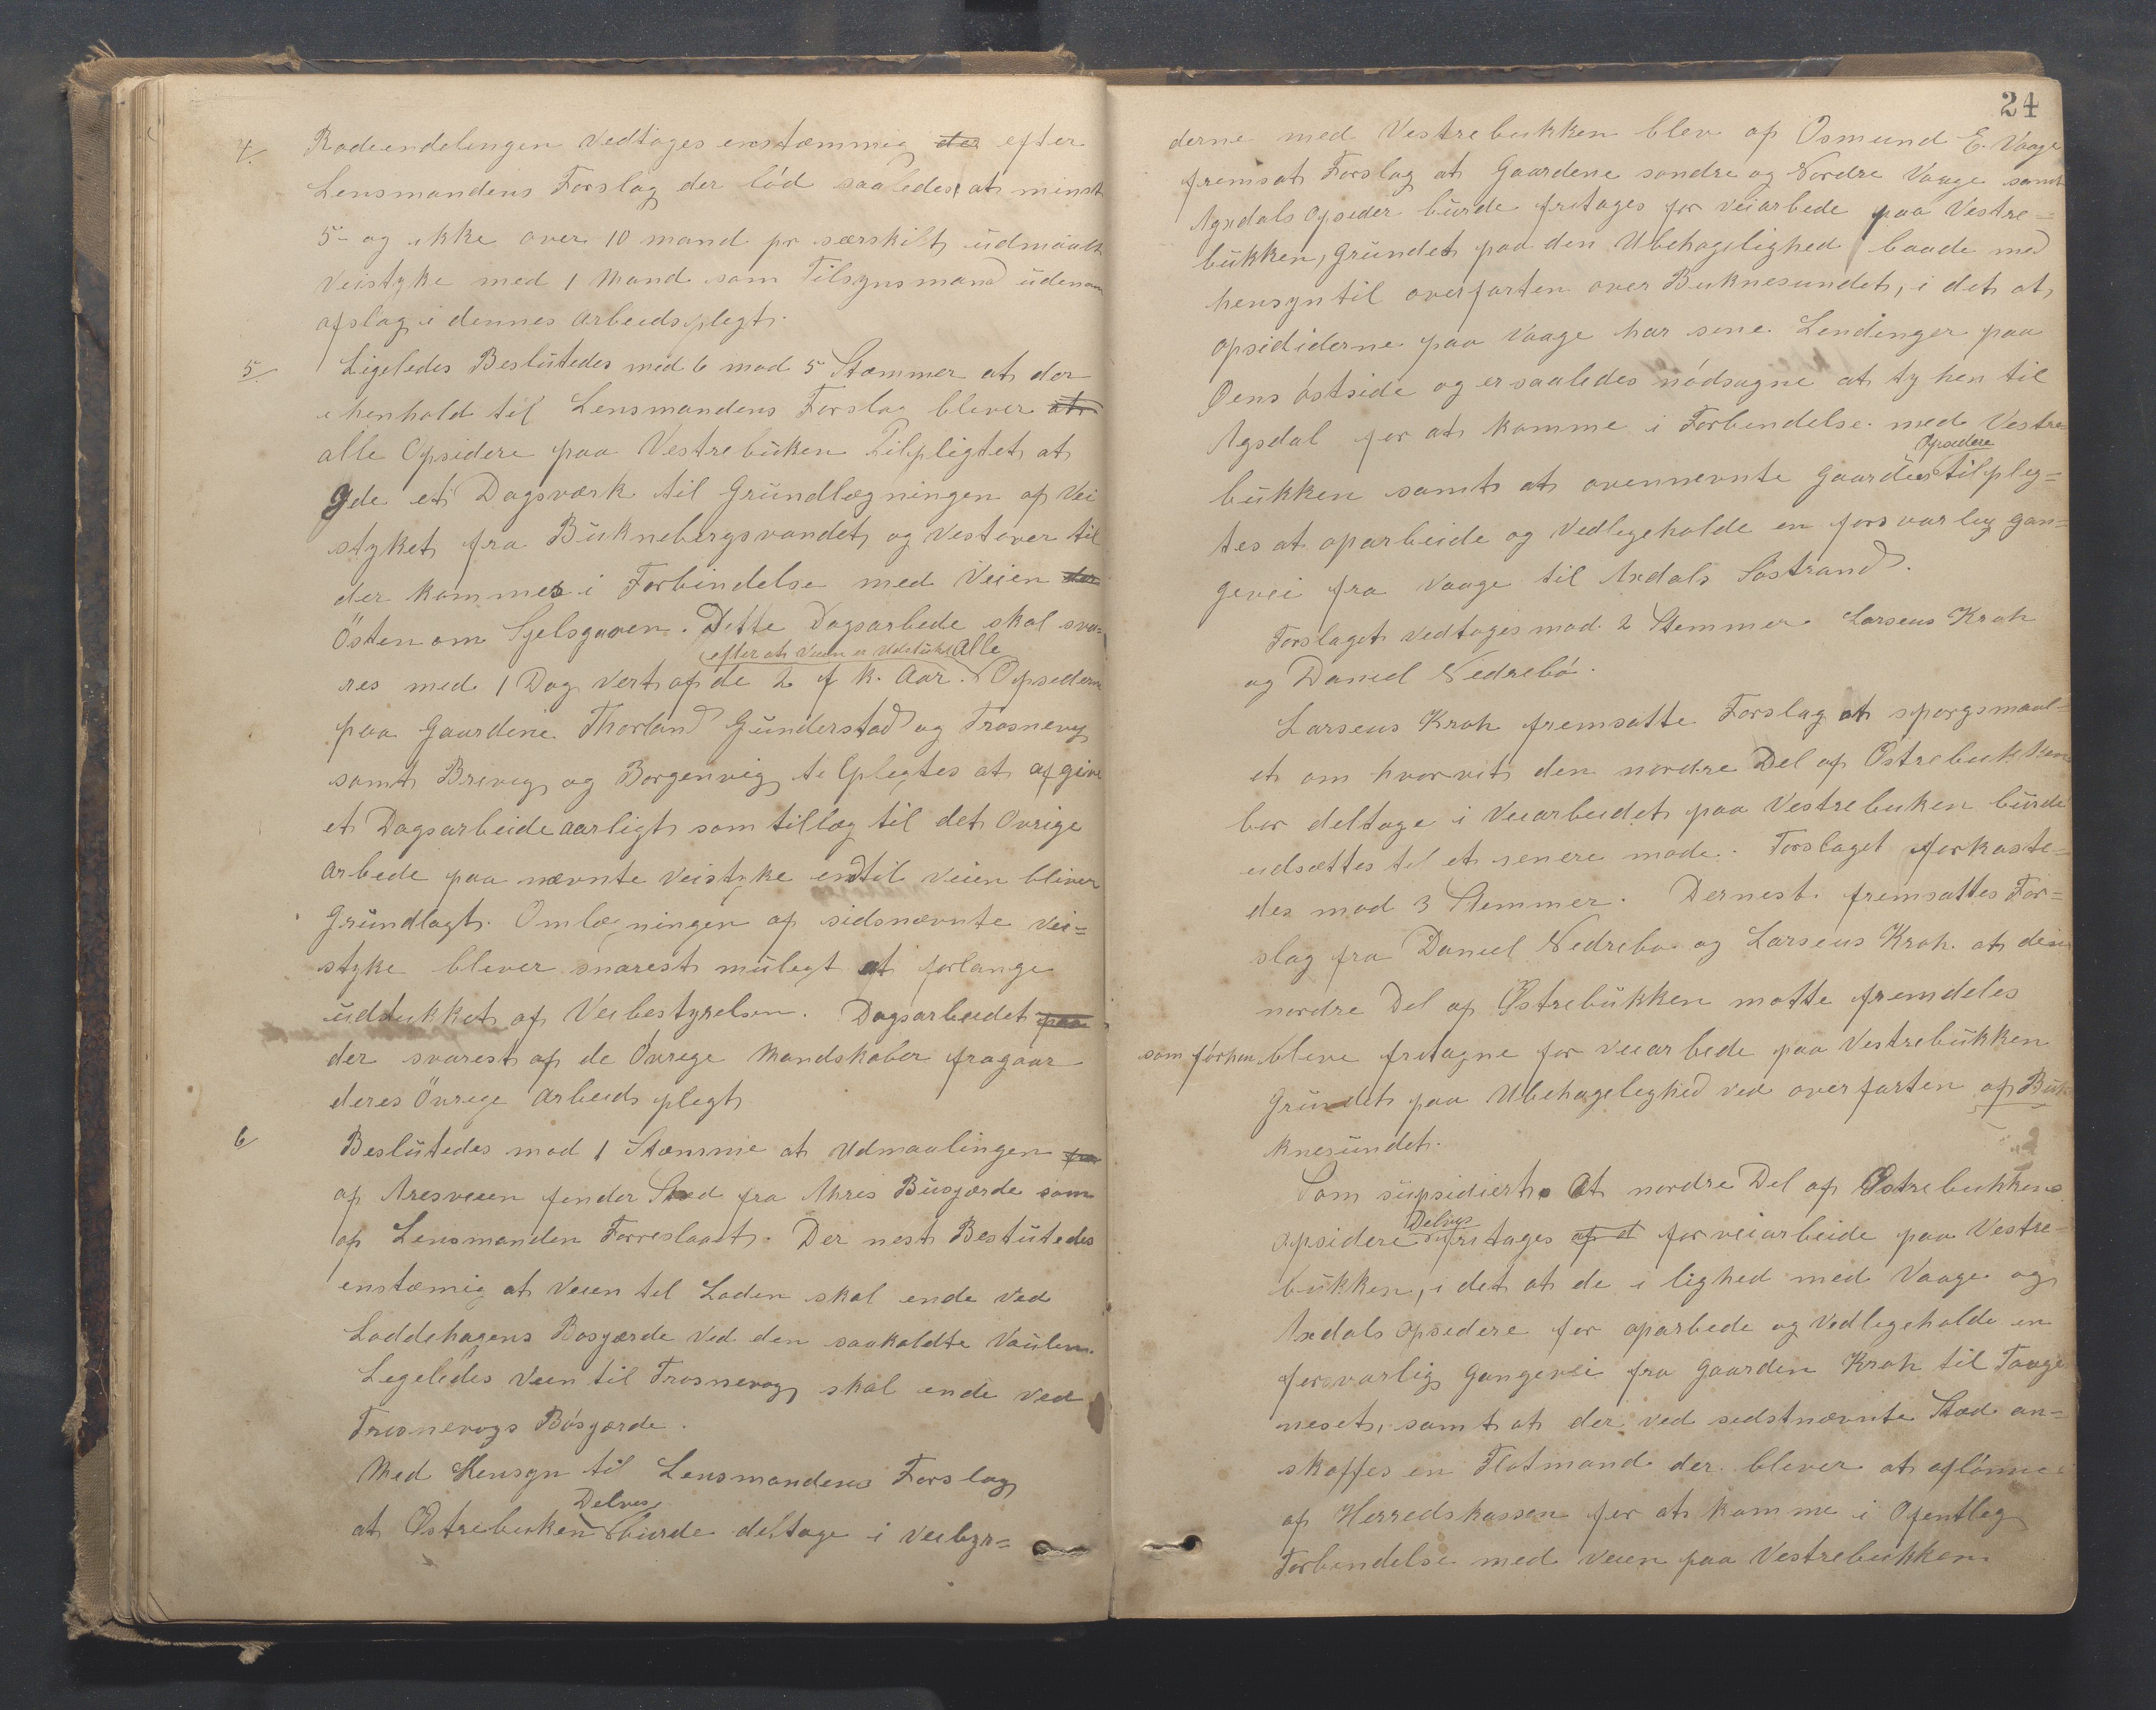 4. Rodeendelingen vedtoges enstæmmig efter
Lensmandens Forslag der lód saaledes, at minst
5- og ikke over 10 mand pr særskilt udmaalt
Veistyke med 1 Mand som Tilsynsmand udenom
afslag i dennes Arbeidsplegt.
5. Ligeledes Beslutedes med 6 mod 5 Stæmmer at der
i henhold til Lensmandens Forslag blever
alle Opsidere paa Vestrebuken Tilpligtet at
yde et Dagsværk til Grundlægningen af Vei
styket fra Buknebergsvandet og Vestover til
der kommes i Forbindelse med Veien
Östen om Sjelsgaven. Dette Dagsarbede skal sva-
efter at Veien er Udstuket Alle
res med 1 Dag Vert af de 2 f k. Aar. Opsederne
paa Gaardene Thorland Gunderstad og Trosnevag
samt Brevig og Borgenvig tilplegtes at afgive
et Dagsarbeide aarligt som tillæg til det Ovrige
Arbede paa nævnte Veistyke endtil Veien bliver
Grundlagt. Omlægningen af sidsnævnte Vei=
styke blever snarest mulegt at forlange
uddukket af Veibestyrelsen. Dagsarbeidet
der svarest af de Óvrege Mandskaber fragaar
deres Övrege Arbeidsplegt
6 Beslutedes mod 1 Stæmme at Udmaalingen
af Aresveien fender Sted fra Akres Busgærde som
af Lensmanden Forreslaaet. Der nest Beslutedes
enstæmig at Veien tel Loden skal ende Ved
Loddehagens Bosgærde Ved den saakaldte Vaulen.
Legeledes Veien til Trosnevag skal ende ved
Trosnevags Bósgærde.
Med Hensyn til Lensmandens Forslag
Delves
at Ostrebuken burde deltage i Veibyr=
24
derne med Vestrebukken blev af Osmund E. Vaage
fremsat Forslag at Gaardene sondre og Nordre Vaage samt
Agsdals Opseder burde fretages for Veiarbede paa Vestre=
bukken, Grundet paa den Ubehagelighed baade med
hensyn til overfarten over Buknesundet, i det at
opsididerne paa Vaage har sine Lendinger paa
Öens óstside og er saaledes nódsagne at ty hen til
Agsdal for at komme i Forbindelse med Vestre
Opsedere
bukken samt at ovennevnte Gaardes tilpleg=
tes at oparbeide og Vedlegeholde en forsvarleg gan=
gevei fra Vaage til Axdals Sóstrand.
Forslaget Vedtoges mod 2 Stemmer Larseus Krok
og Daniel Nedrebó.
Larseus Krok fremsatte Forslag at sporgsmaal-
et om hvorvit den nordre Del af Östrebukken
bor deltage i Veiarbeidet paa Vestrebuken burde
udsættes til et senere mode. Forslaget forkaste=
des mod 3 Stemmer. Dernest fremsattes For=
slag fra Daniel Nedrebo og Larseus Krok at den
nordre Del af Östrebukken motte fremdeles
som fórhen bleve fretagne for Veiarbede paa Vestrebukken
Grundet paa Ubehageleghed ved overfarten af Buk
knesundet.
Som supsidiert. At nordre Del af Östrebukkens
Delves
Opsidere fritages for veiarbeide paa Vestre-
bukken, i det at de i lighed med Vaage og
Axdals Opsedere for oparbede og Vedlegeholde en
forsvarlig Gangevei fra Gaarden Krok til Taage
neset, samt at der ved sedstnævnte Stæd an=
skaffes en Flotmand der blever at aflónnes
af Herredskassen for at komme i Ofentleg
Forbendelse med Veien paa Vestrebukken